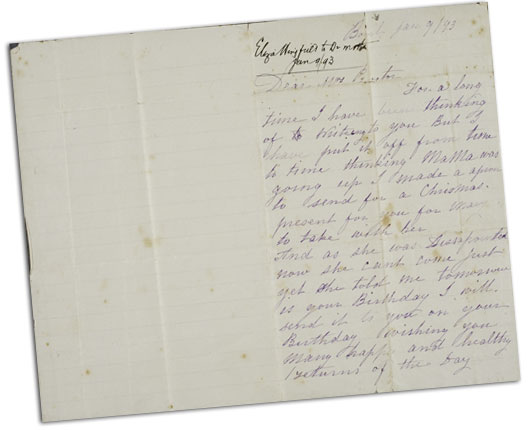 Jan 9/93
Eliza Wingfield to Dr
Jan 9/93
Dear Mrs
For a long
time I have been thinking
of to writing to you But I
have put it off from time
to time thinking MaMa was
going up I made a apon
to send for a Chismas.
present for you for Mam
to take with her
And as she was Dissapointed
now she cant come just
yet She told me tomorrow
is your Birthday I will
send it to you on your
Birthday wishing you
Many happy and healthy
returns of the Day